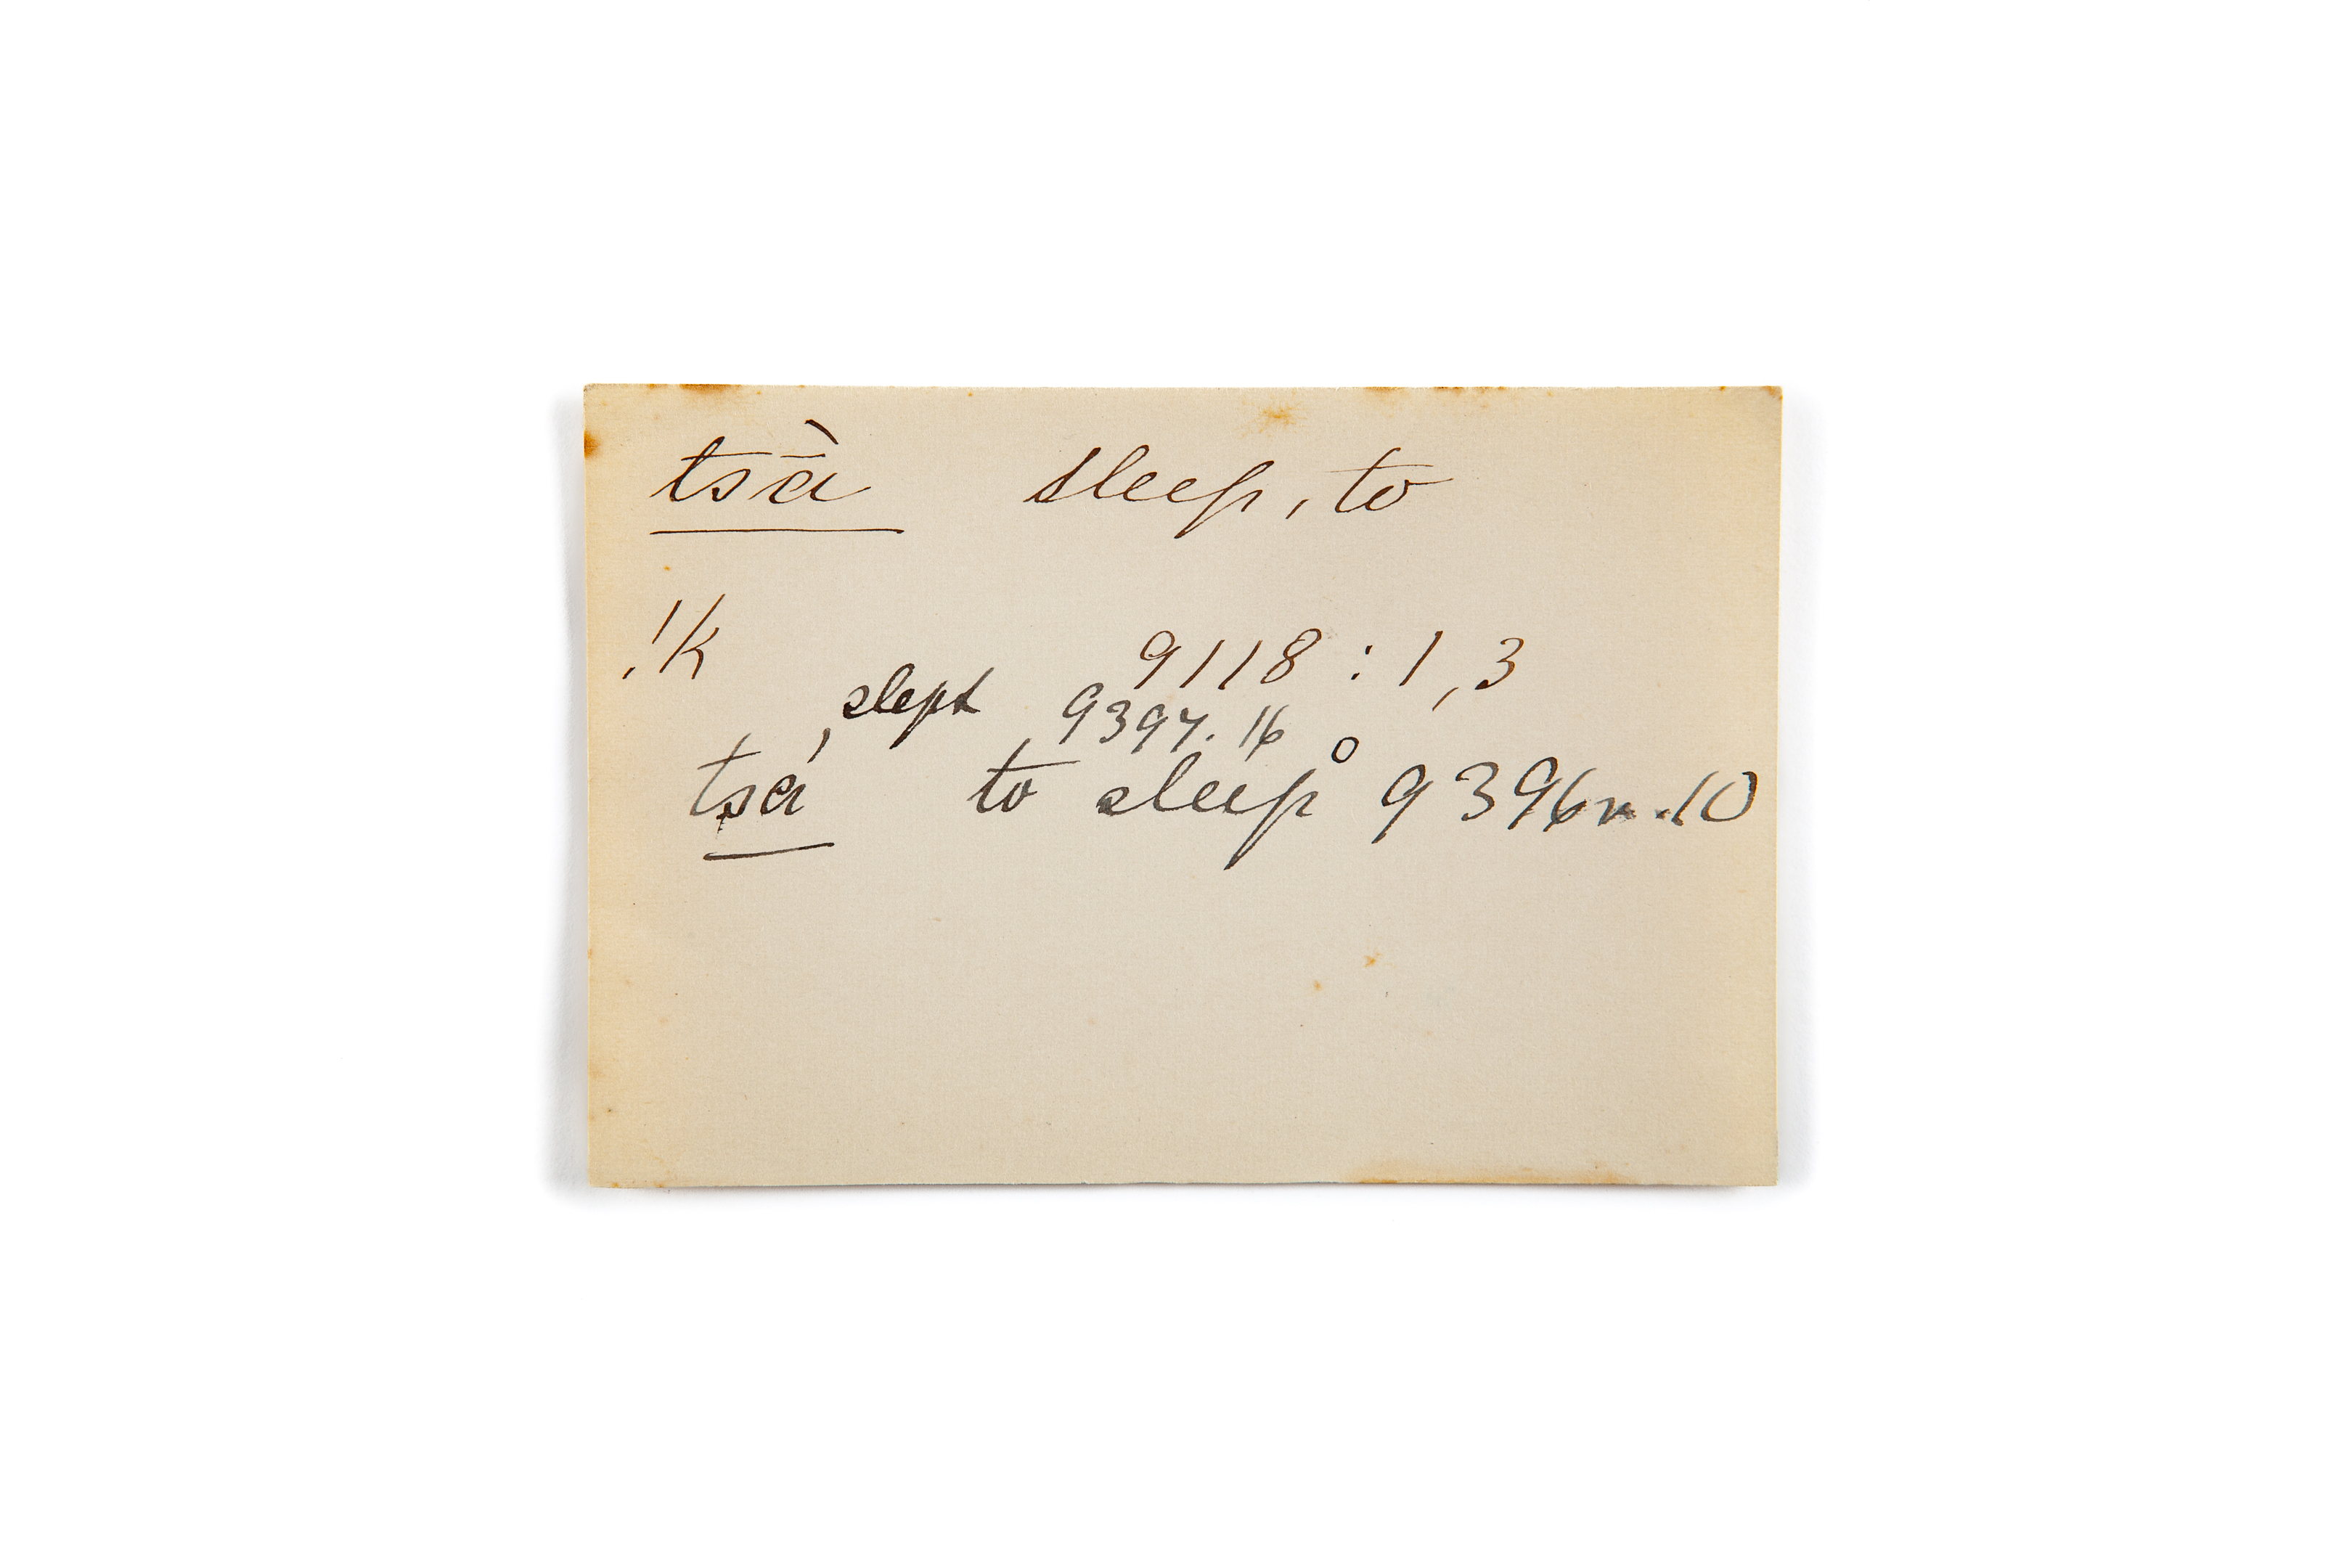 tsā̀ sleep, to
!k 9118 : 1, 3
slept 9397. 16
tsá to sleep° 9396n.10